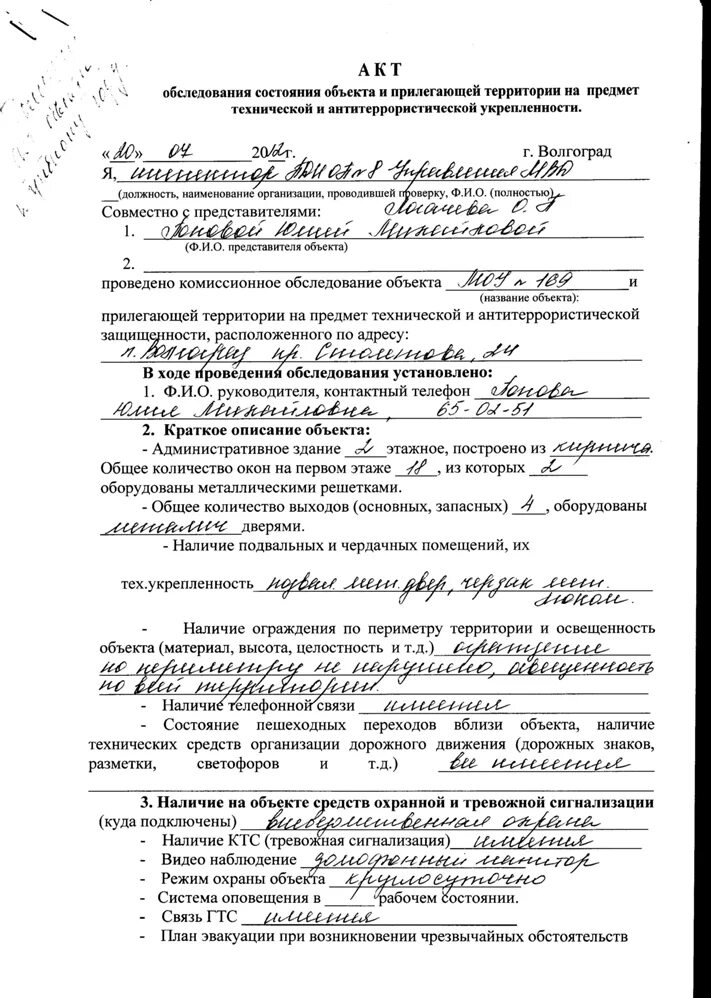 А К Т
обследования состояния объекта и прилегающей территории на предмет
технической и антитеррористической укрепленности.
«20» 07 2012г. г. Волгоград
Я, инспектор № 8 Управления МВД
(должность, наименование организации, проводившей проверку, Ф.И.О. (полностью)
Совместно с представителями: Логачева О. П
1. Поповой Юлией Михайловой
(Ф.И.О. представителя объекта)
2.
проведено комиссионное обследование объекта МОУ № 169 и
(название объекта):
прилегающей территории на предмет технической и антитеррористической
защищенности, расположенного по адресу:
г. Волгоград пр. Столетова, 24
В ходе проведения обследования установлено:
1. Ф.И.О. руководителя, контактный телефон Попова
Юлия Михайловна, 65-02-51
2. Краткое описание объекта:
- Административное здание 2 этажное, построено из кирпича.
Общее количество окон на первом этаже 18, из которых 2
оборудованы металлическими решетками.
- Общее количество выходов (основных, запасных) 4, оборудованы
металлич дверями.
- Наличие подвальных и чердачных помещений, их
тех.укрепленность подвал. мет. двер, чердак мет.
люком.
- Наличие ограждения по периметру территории и освещенность
объекта (материал, высота, целостность и т.д.) ограждение
по периметру не нарушено, освещенность
по всей территории.
- Наличие телефонной связи имеется
- Состояние пешеходных переходов вблизи объекта, наличие
технических средств организации дорожного движения (дорожных знаков,
разметки, светофоров и т.д.) все имеется
3. Наличие на объекте средств охранной и тревожной сигнализации
(куда подключены) вневедомственная охрана
- Наличие КТС (тревожная сигнализация) имеется
- Видео наблюдение домофонный монитор
- Режим охраны объекта круглосуточно
- Система оповещения в рабочем состоянии.
- Связь ГТС имеется
- План эвакуации при возникновении чрезвычайных обстоятельств